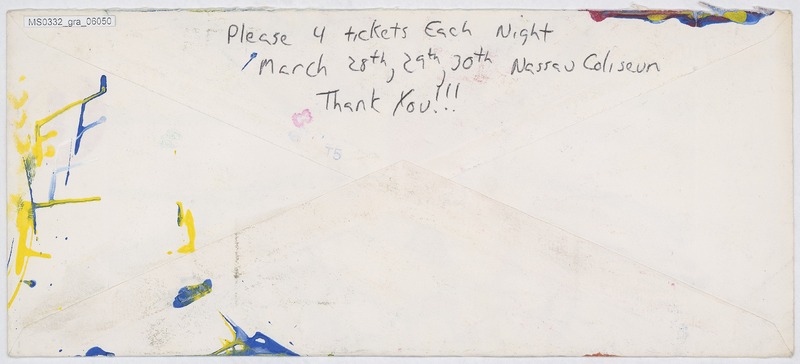 MS0332_gra_06050
Please 4 tickets Each Night
March 28th, 29th, 30th Nassau Coliseum
Thank You!!!
T5